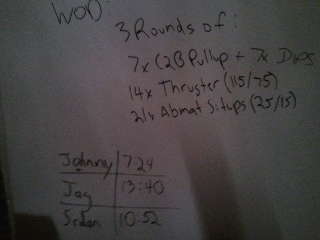 WOD:
3 Rounds of:
7x C2B Pullup + 7x Dips
14x Thruster (115/75)
21x Abmat Situps (25/15)
Johnny 7:24
Jay 13:40
10:52